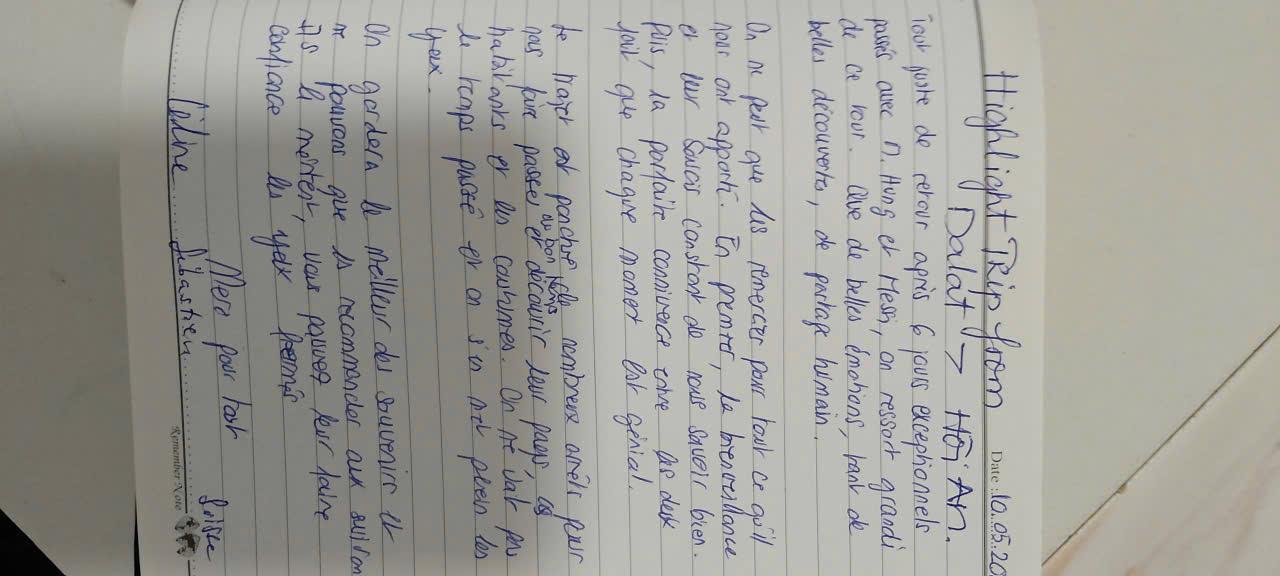 Date : 10.05.20
Highlight Trip from
Dalat → Hôi An.
Tout juste de retour après 6 jours exceptionnels
passés avec M. Hung et Messi, on ressort grandi
de ce tour. Que de belles émotions, tant de
belles découvertes, de partage humain.
On ne peut que les remercier pour tout ce qu'il
nous ont apporté. En premier, la bienveillance
et leur soucis constant de nous savoir bien.
Puis, la parfaite connivence entre les deux
fait que chaque moment est génial.
Le trajet est ponctué de nombreux arrêts pour
nous faire passer du bon temps et découvrir leur pays, les
habitants et les coutumes. On ne voit pas
le temps passé et on s'en met plein les
yeux.
On gardera le meilleur des souvenirs et
ne pouvons que les recommander aux suivants
Ils le méritent, vous pouvez leur faire
confiance les yeux fermés
Merci pour tout
Céline Sébastien Suisse
Remember Note